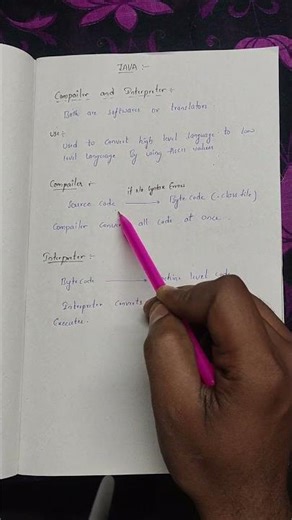 JAVA :-
Compailer and Interpreter :-
Both are softwares or translators
use :-
Used to convert high level language to low
level language By using Ascii values
Compailer :-
if no Syntax Errors
Source code → Byte code (.class file)
Compailer all code at once.
Interpreter :-
Bytecode → level code
Interpreter converts
Executes.